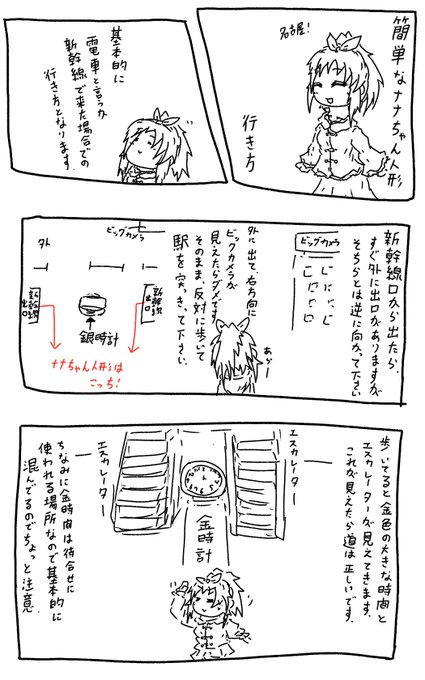 簡単なナナちゃん人形
行き方
名古屋!
基本的に
電車と言うか
新幹線で来た場合での
行き方となります。
新幹線口から出たら、
すぐ外に出口がありますが
そちらとは逆に向かって下さい
ビックカメラ
外に出て、右方向に
ビックカメラが
見えたらダメです。
そのまま、反対に歩いて
駅を突っきって下さい。
あらー
ビックカメラ
外
新幹線
出口
新幹線
出口
銀時計
ナナちゃん人形は
こっち!
歩いてると金色の大きな時間と
エスカレーターが見えてきます。
これが見えたら道は正しいです。
エスカレーター
金時計
エスカレーター
ちなみに金時間は待合せに
使われる場所なので基本的に
混んでるのでちょっと注意。